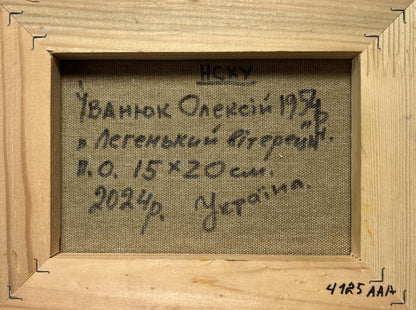 НСХУ
Іванюк Олексій 1954р
„Легенький вітерець".
п.о. 15×20 см.
2024р. Україна.
4125 ААА